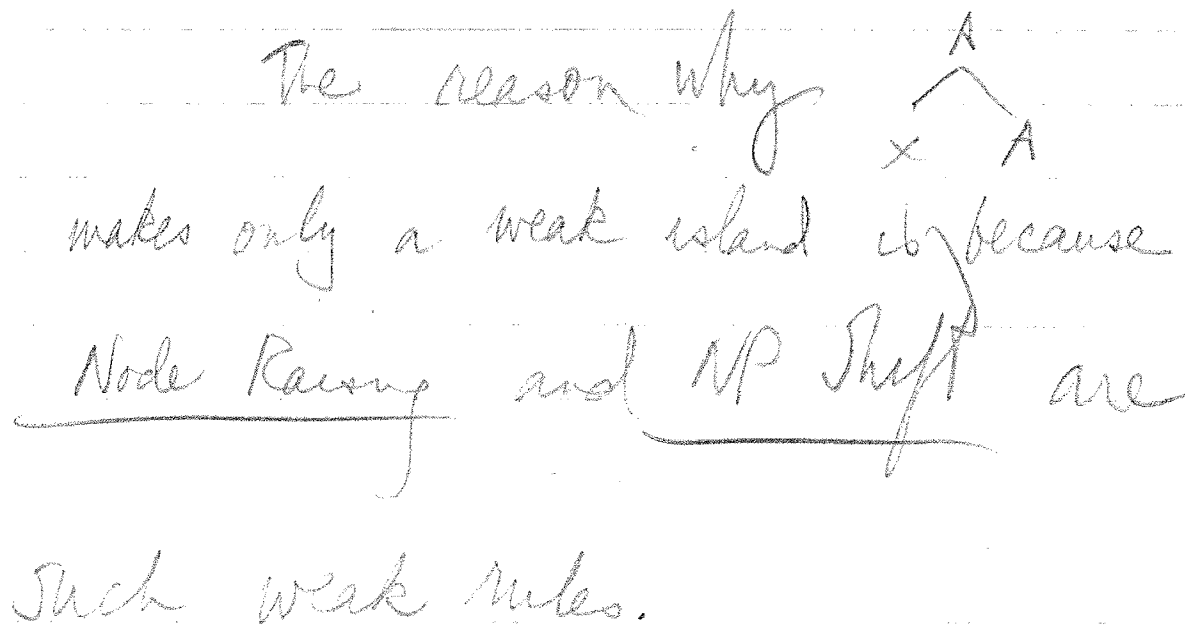 The reason why A
x A
makes only a weak island is because
Node Raising and NP Shift are
such weak rules.